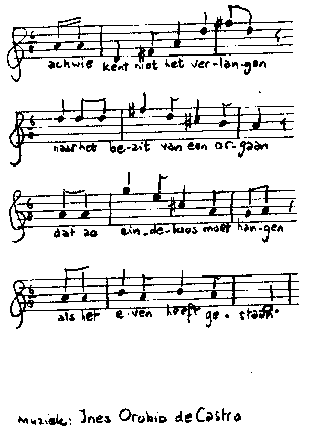 achwie kent niet het ver-lan-gen
naar het be-zit van een or-gaan
dat zo ein-de-loos moet han-gen
als het e-ven heeft ge-staan
Muziek: Ines Orobio de Castro